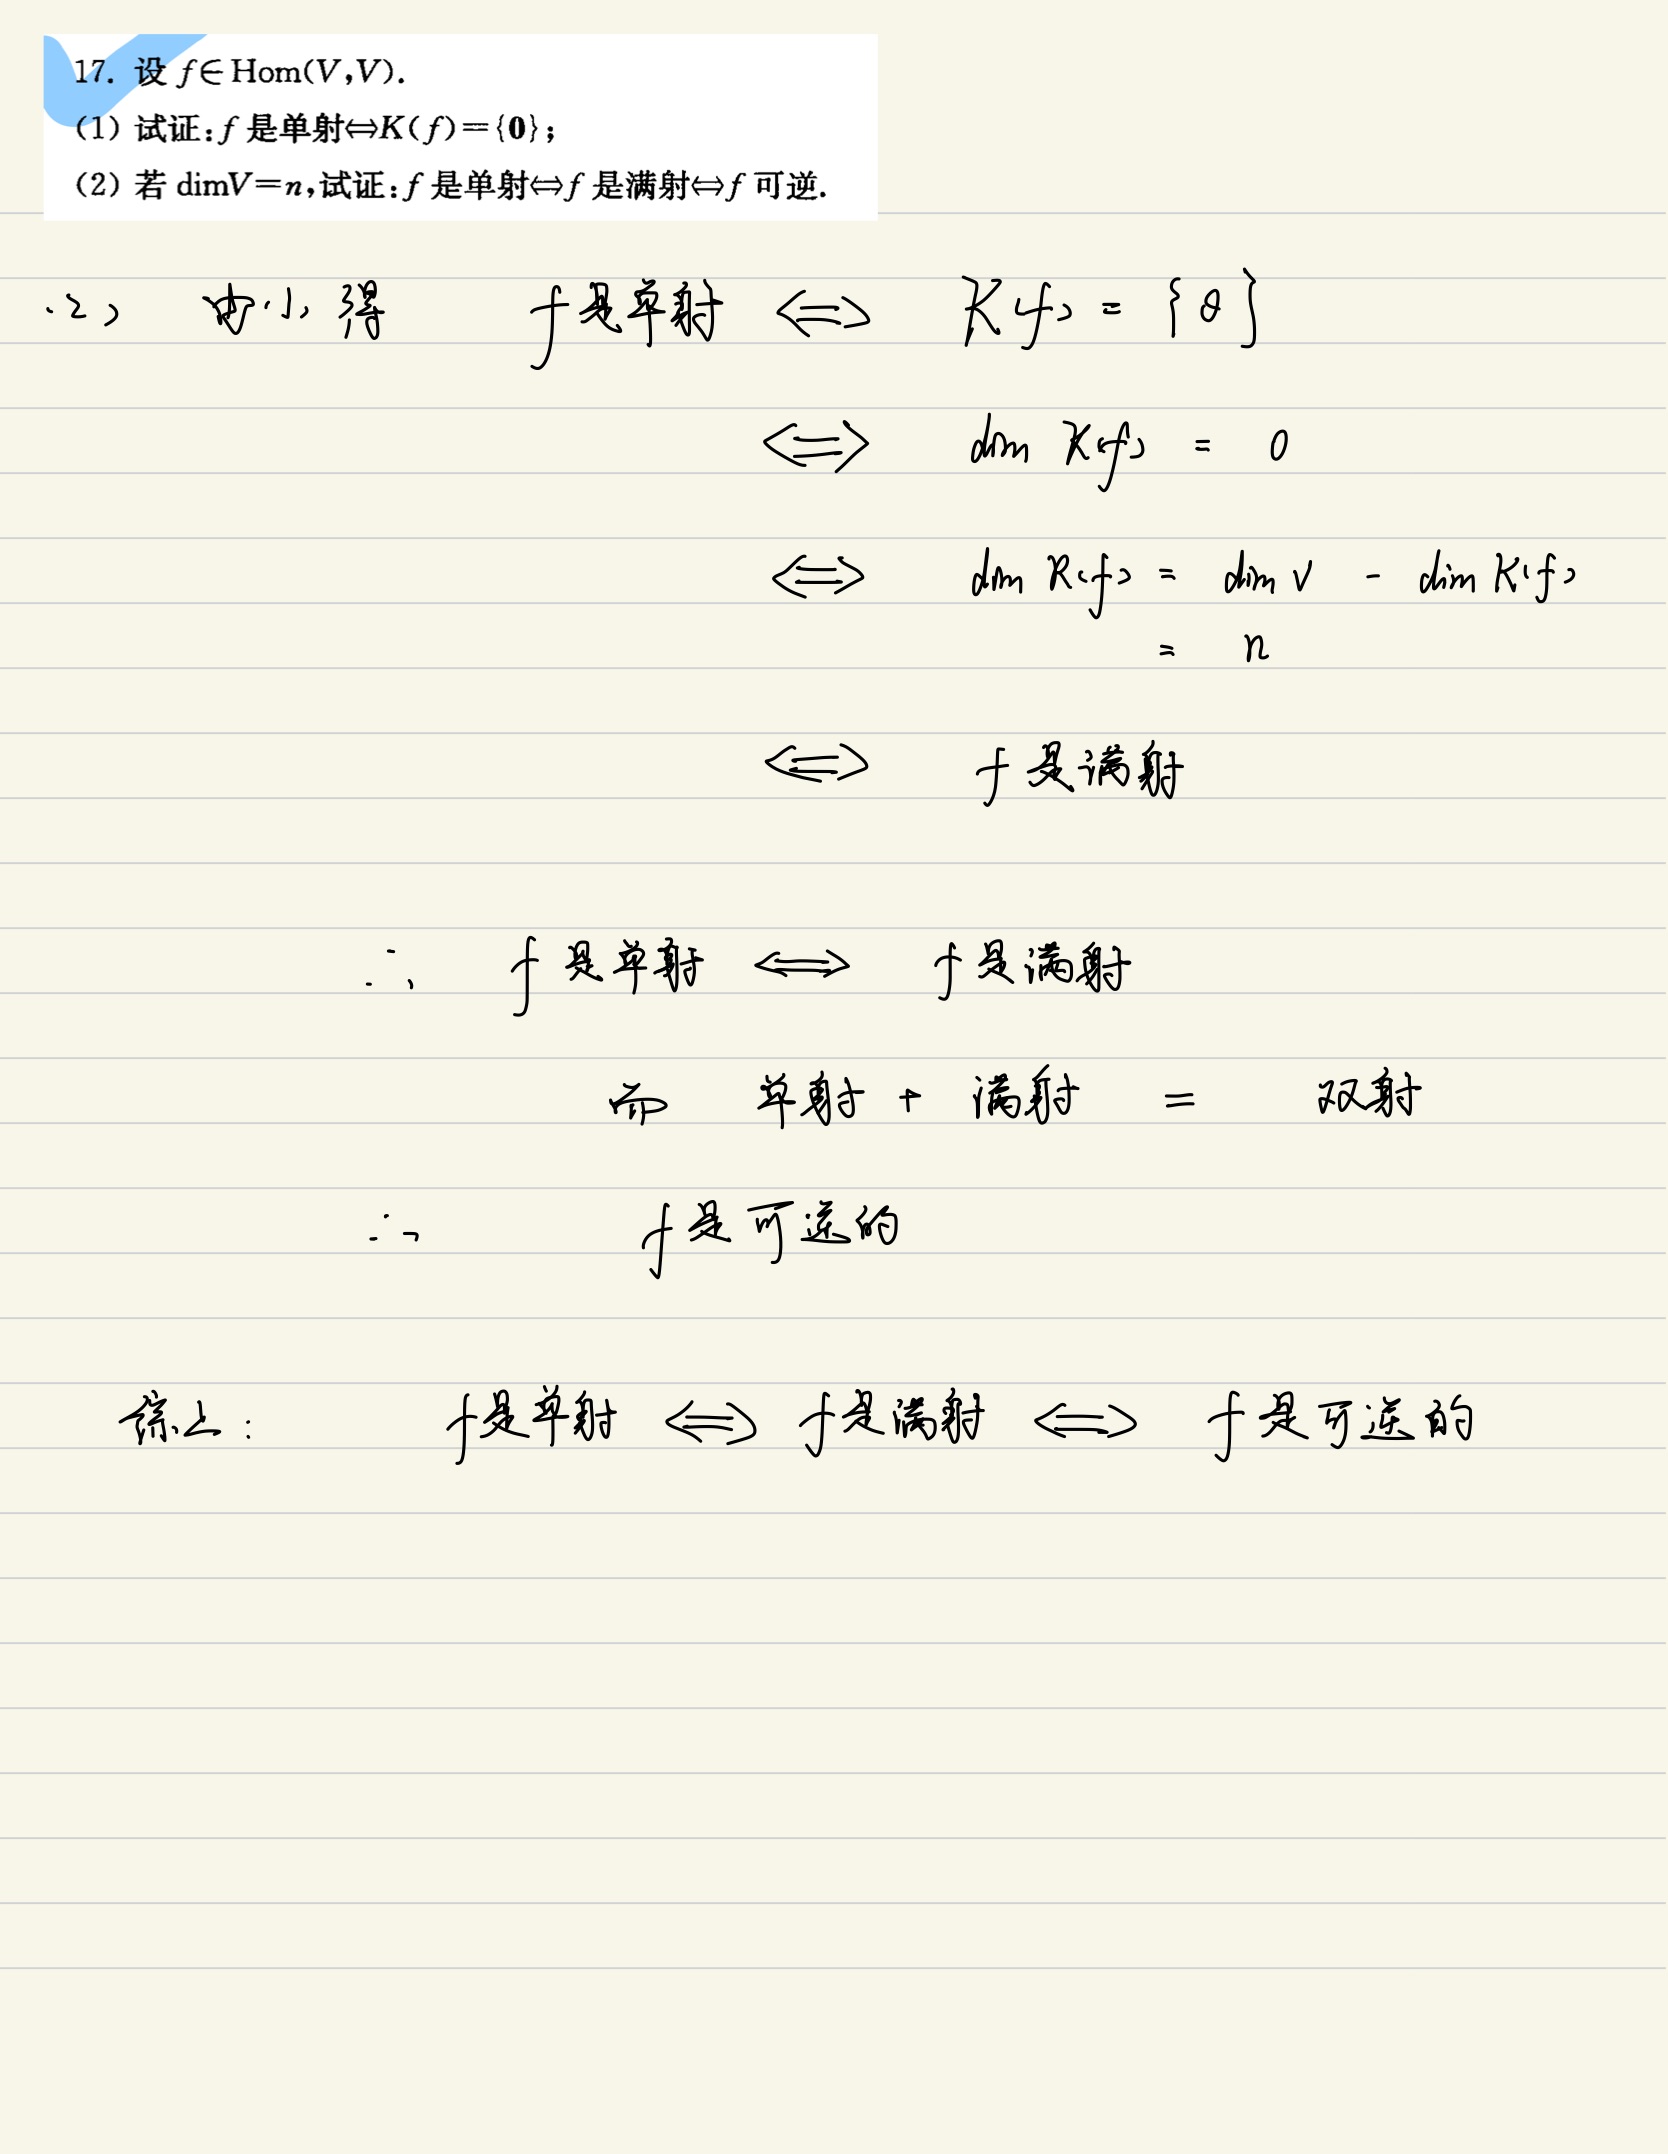 17. 设 f∈Hom(V,V).
(1) 试证:f 是单射⇔K(f)={0};
(2) 若 dimV=n,试证:f 是单射⇔f 是满射⇔f 可逆.
(2) 由(1)得 f是单射 ⇔ K(f) = {θ}
⇔ dim K(f) = 0
⇔ dim R(f) = dim V - dim K(f)
= n
⇔ f 是满射
∴ f 是单射 ⇔ f 是满射
而 单射 + 满射 = 双射
∴ f 是可逆的
综上: f是单射 ⇔ f是满射 ⇔ f 是可逆的